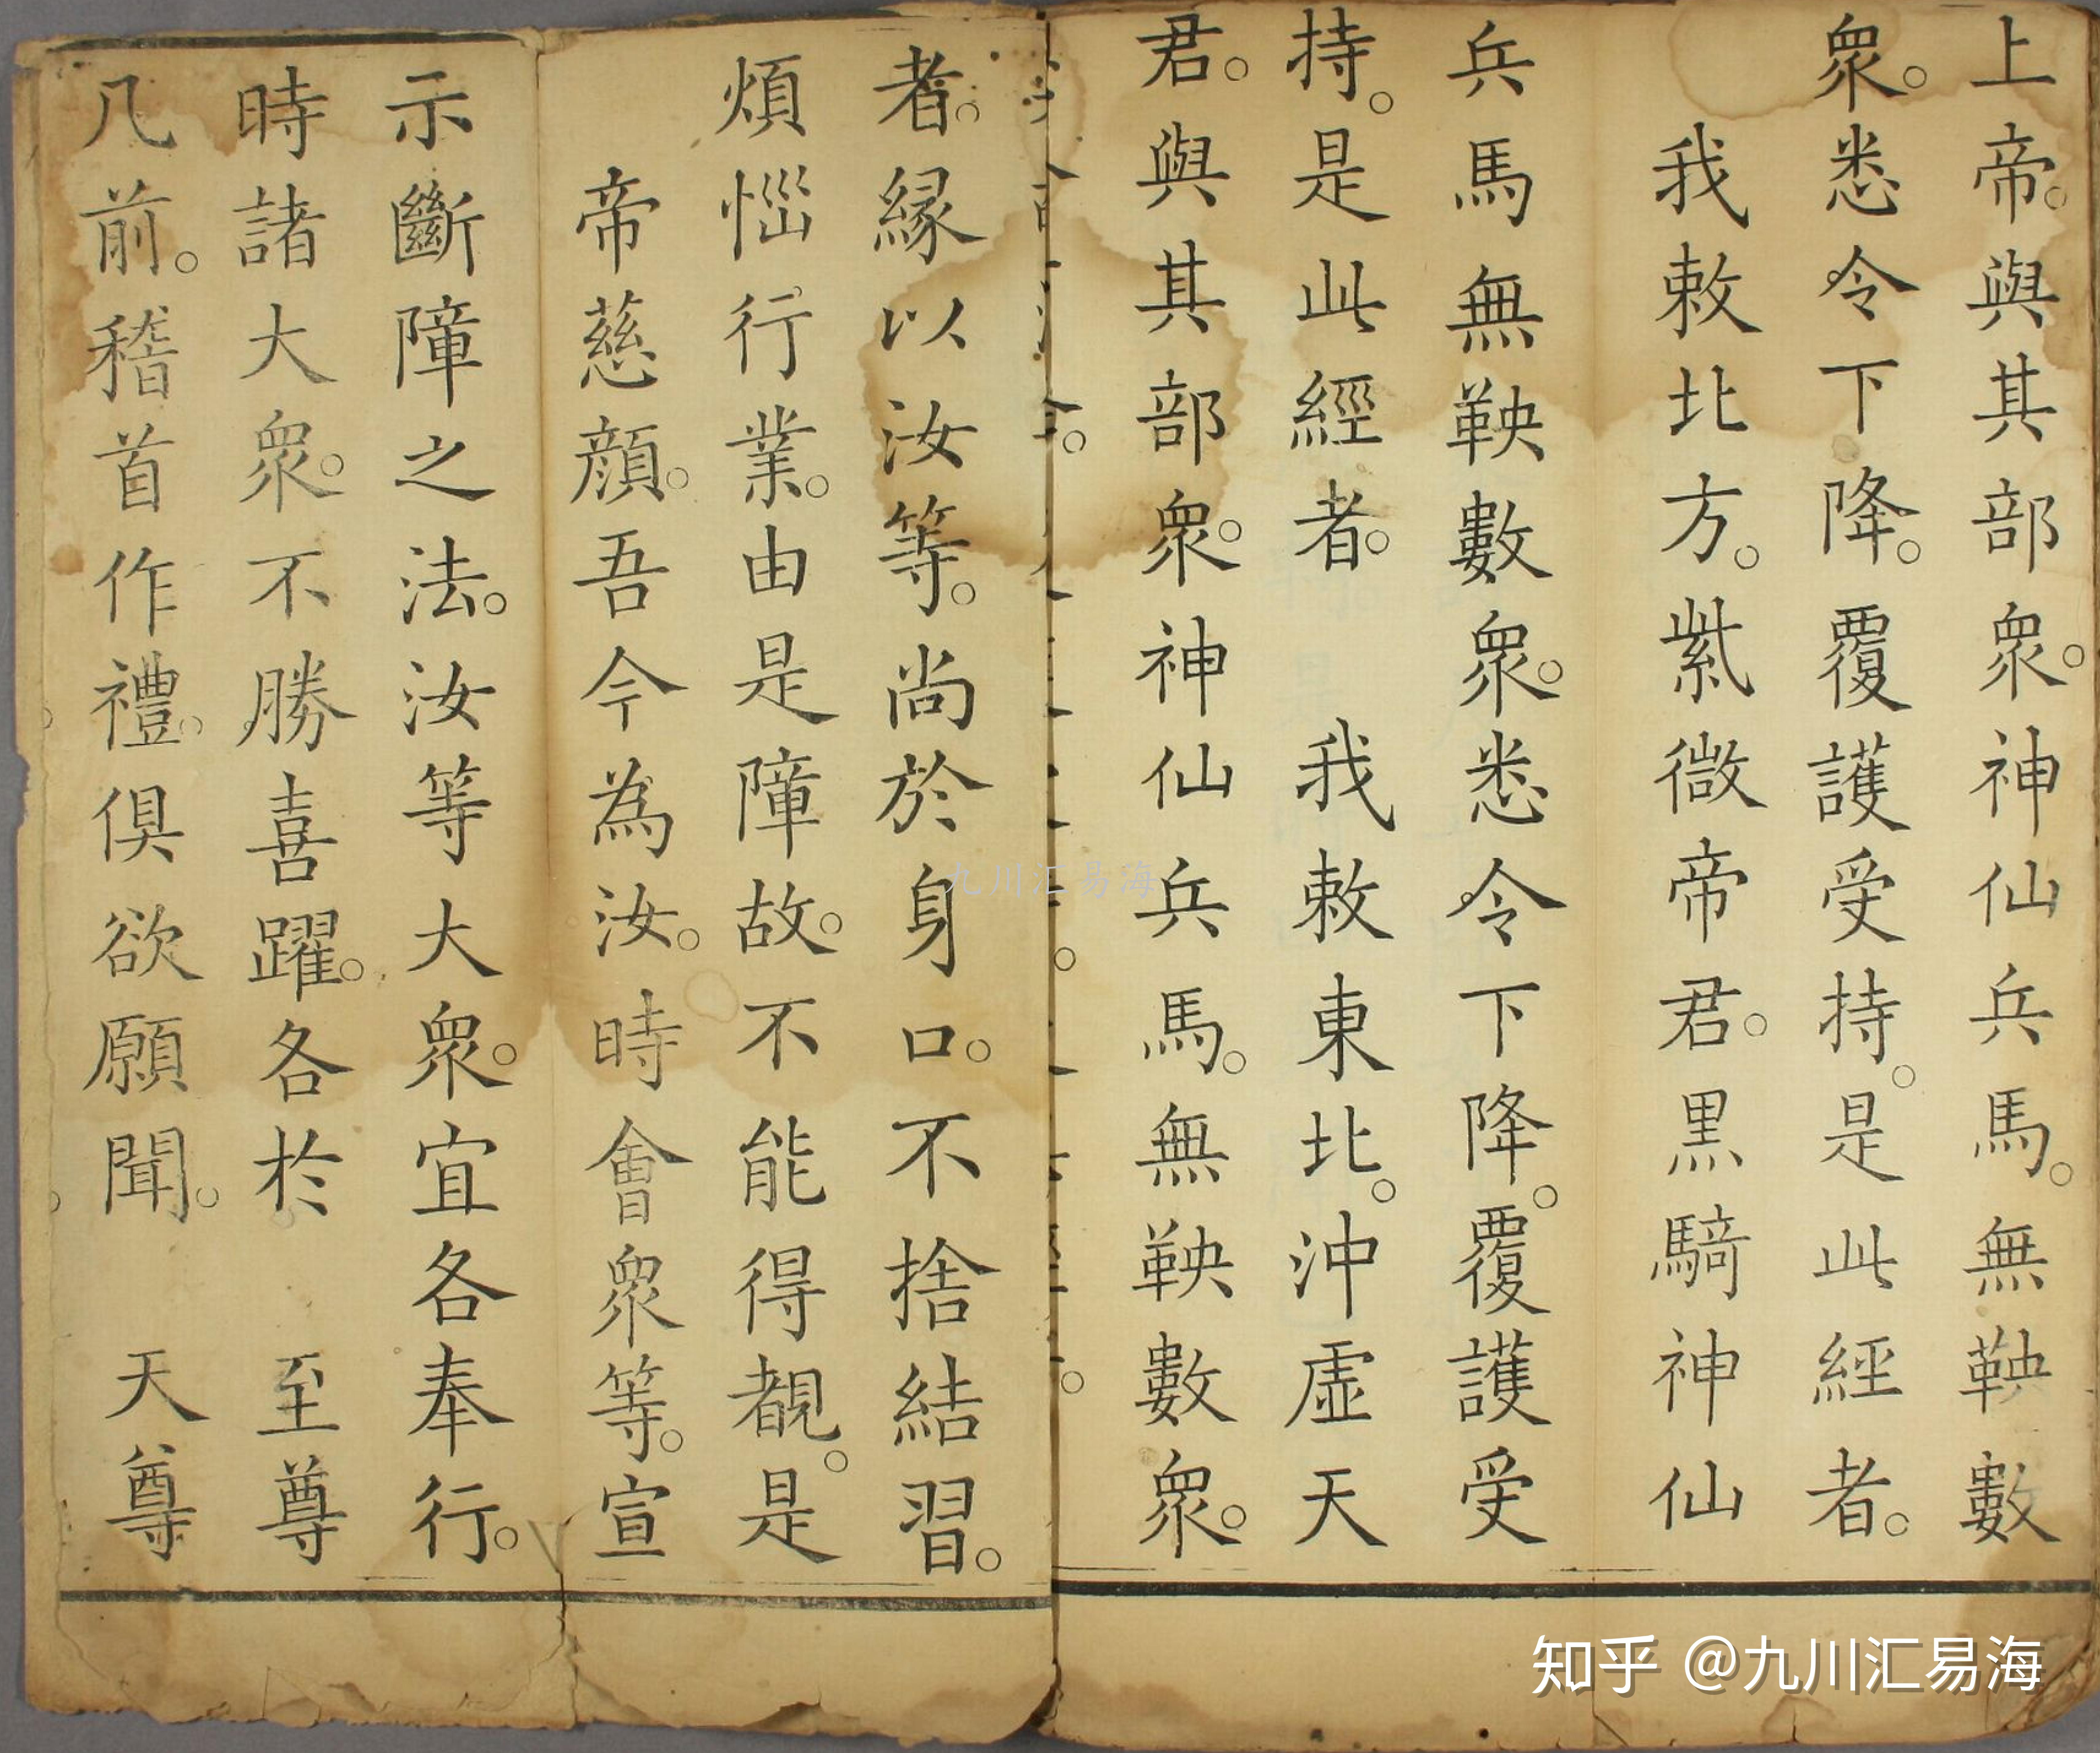 上帝。與其部衆。神仙兵馬。無鞅數
衆。悉令下降。覆護受持。是此經者。
我敕北方。紫微帝君。黑騎神仙
兵馬無鞅數衆。悉令下降。覆護受
持。是此經者。　我敕東北。沖虛天
君。與其部衆。神仙兵馬。無鞅數衆。
者。緣以汝等。尚於身口。不捨結習。
煩惱行業。由是障故。不能得覩。是
帝慈顏。吾今為汝。時會衆等。宣
示斷障之法。汝等大衆。宜各奉行。
時諸大衆。不勝喜躍。各於　至尊
几前。稽首作禮。俱欲願聞。　天尊
九川汇易海
知乎 @九川汇易海